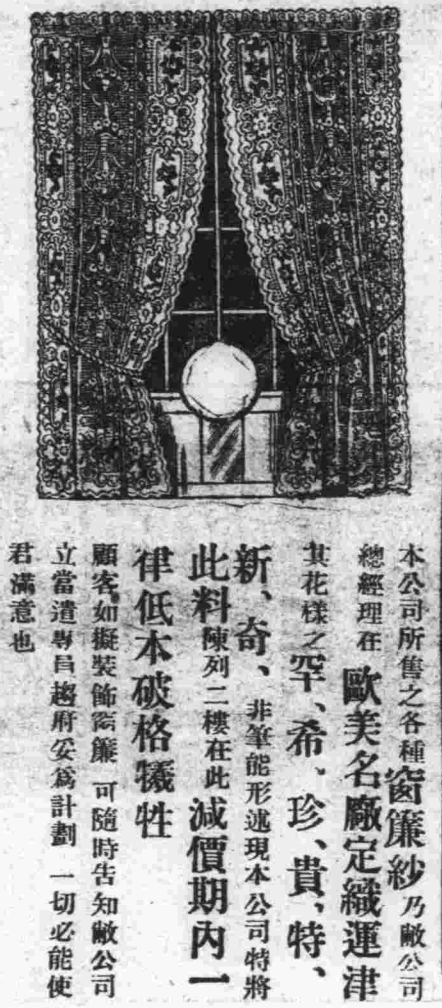 本公司所售之各種窗簾紗乃敝公司
總經理在歐美名廠定織運津
其花樣之罕、希、珍、貴、特、
新、奇、非筆能形述現本公司特將
此料陳列二樓在此減價期內一
律低本破格犧牲
顧客如擬裝飾窗簾 可隨時告知敝公司
立當遣專員趨府妥爲計劃 一切必能使
君滿意也